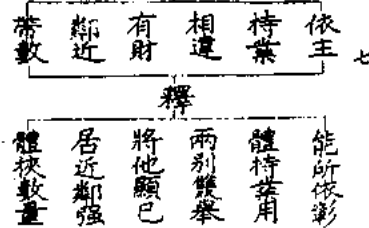 七
依主
持業
相違
有財
鄰近
帶數
釋
能所依彰
體持業用
兩別雙舉
將他顯己
居近鄰强
體挾數量